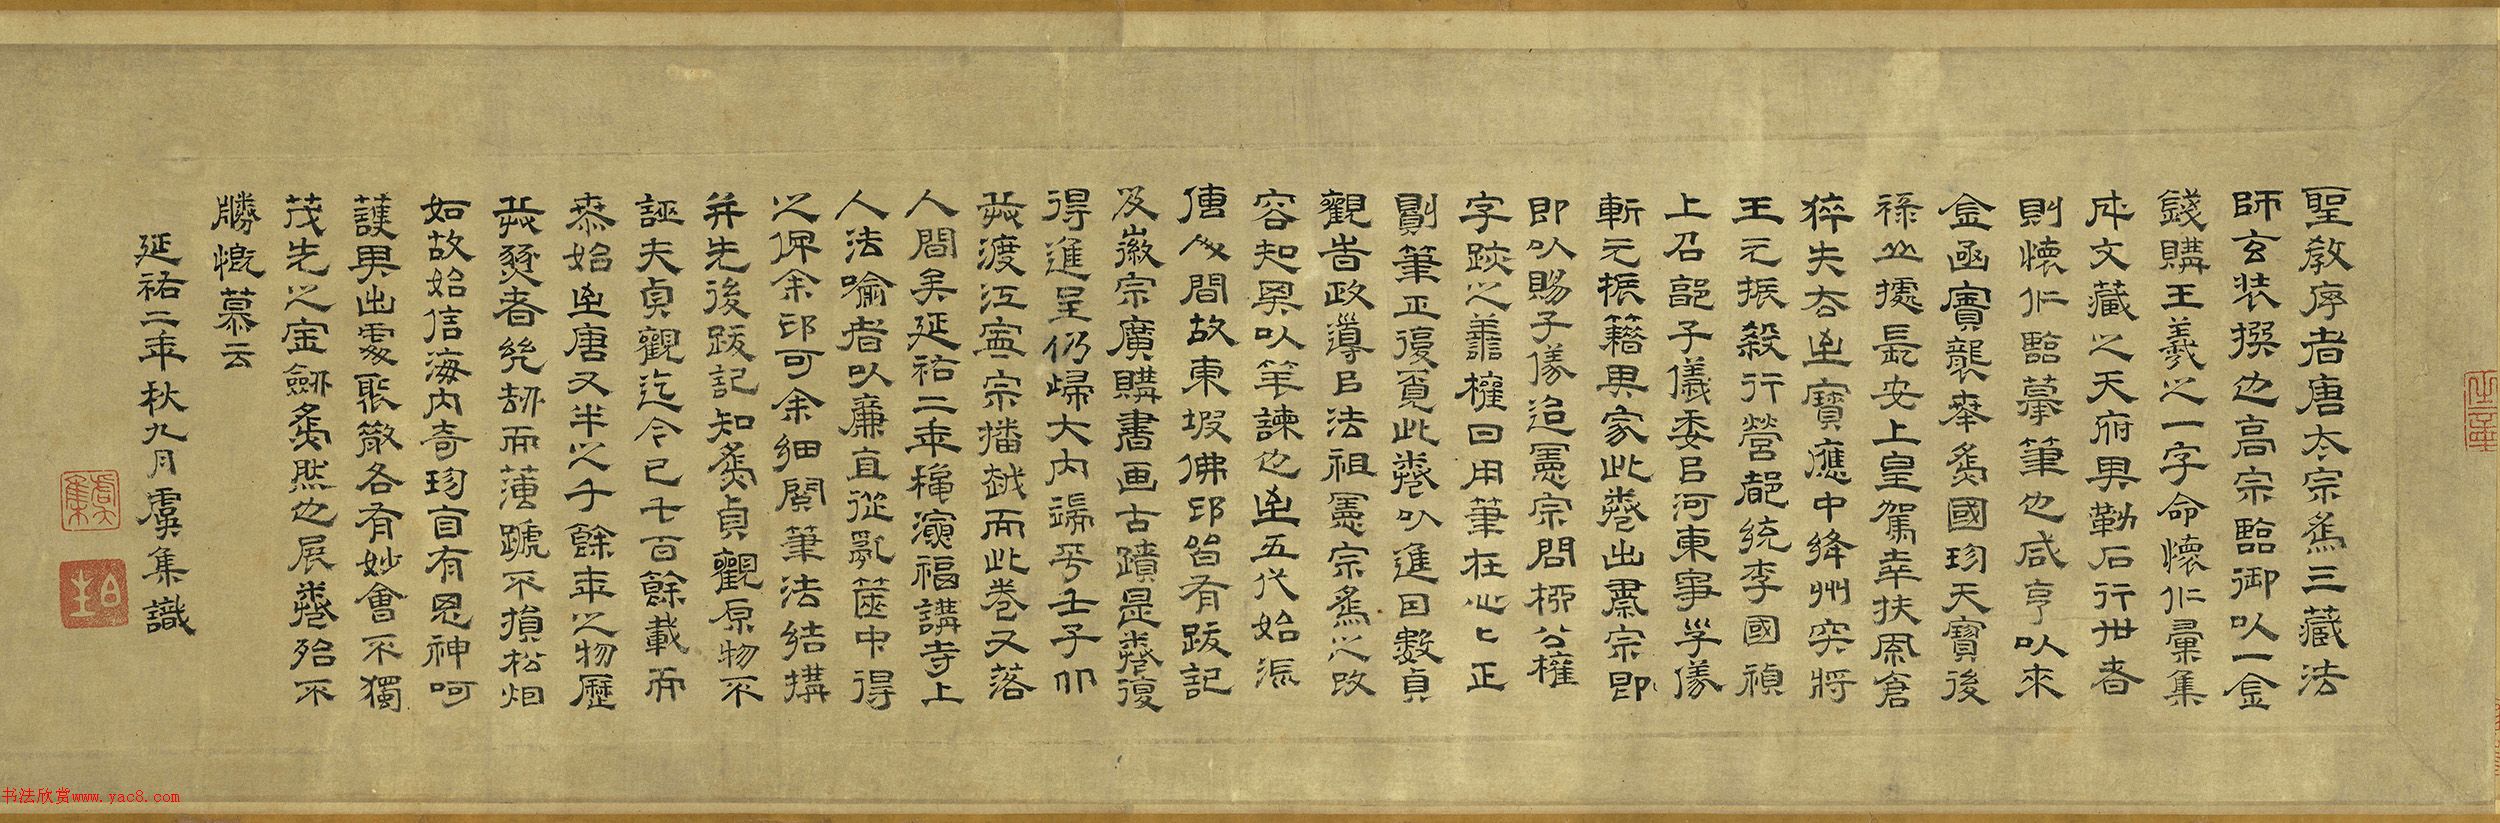 聖教序者唐太宗為三藏法
師玄奘撰也高宗臨御以一金
錢購王羲之一字命懷仁彙集
成文藏之天府具勒石行世者
則懷仁臨摹筆也咸亨以來
金函寶襲奉為國珍天寶後
祿山據長安上皇駕幸扶風倉
猝失去至寶應中絳州突將
王元振殺行營都統李國禎
上召郭子儀委以河東事子儀
斬元振籍其家此卷出肅宗即
即以賜子儀迨憲宗問柳公權
字跡之善權曰用筆在心心正
則筆正復覓此卷以進因數貞
觀告政導以法祖憲宗為之改
容知其以筆諫也至五代始流
傳人間故東坡佛印皆有跋記
及徽宗廣購書画古蹟是卷復
得進呈仍歸大內端平壬子
裝渡江寧宗播越而此卷又落
人間矣延祐二年穐演福講寺上
人法喻者以廉直從亂篋中得
之俾余印可余細閱筆法結搆
并先後跋記知為貞觀原物不
誣夫貞觀迄今已七百餘載而
泰始至唐又半之千餘年之物歷
裝燹者幾刼而蕩號不損松烟
如故始信海內奇珍自有鬼神呵
護其出處聚散各有妙會不獨
茂先之寶劍為然也展卷殆不
勝慨慕云
延祐二年秋九月虞集識
虞集
書法欣赏www.yac8.com